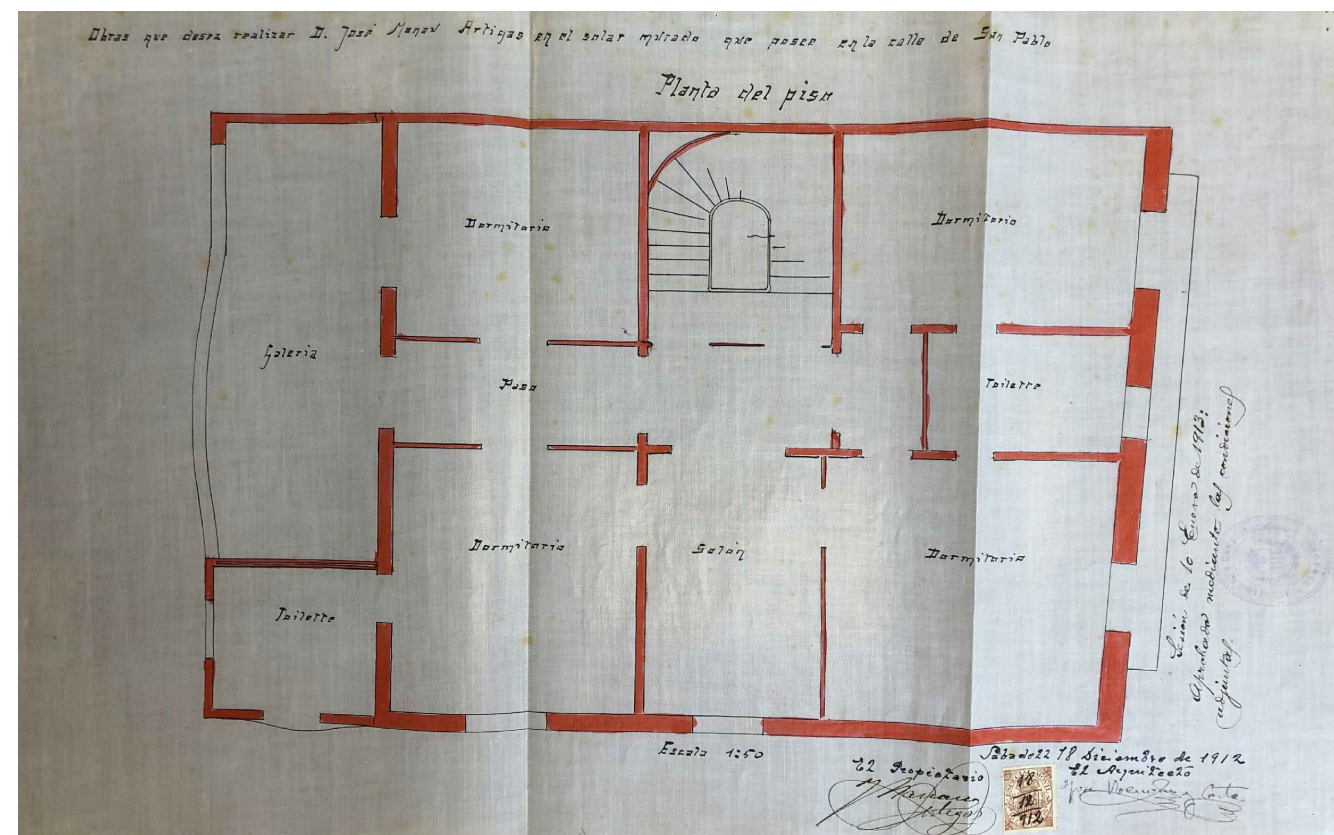 Obras que desea realizar D. José Manau Artigas en el solar murado que posee en la calle de San Pablo
Planta del piso
Dormitorio
Dormitorio
Galeria
Paso
Toilette
Dormitorio
Salón
Dormitorio
Toilette
Escala 1:50
Sabadell 18 Diciembre de 1912
El Propietario
El Arquitecto
18
12
912
Sesión de 10 Enero de 1913:
Aprobado mediante las condiciones
adjuntas.